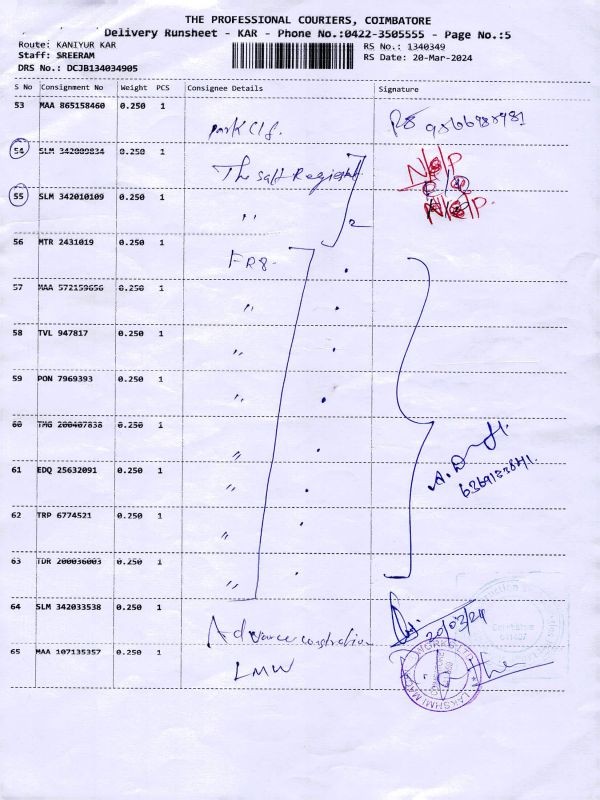 THE PROFESSIONAL COURIERS, COIMBATORE
Delivery Runsheet - KAR - Phone No.:0422-3505555 - Page No.:5
Route: KANIYUR KAR
RS No.: 1340349
Staff: SREERAM
RS Date: 20-Mar-2024
DRS No.: DCJB134034905
S No Consignment No Weight PCS Consignee Details Signature
53 MAA 865158460 0.250 1
Park Clg.
54 SLM 342009834 0.250 1
The Salt
55 SLM 342010109 0.250 1
"
2
56 MTR 2431019 0.250 1
57 MAA 572159656 0.250 1
"
58 TVL 947817 0.250 1
"
59 PON 7969393 0.250 1
"
60 TMG 200407838 0.250 1
"
61 EDQ 25632091 0.250 1
"
62 TRP 6774521 0.250 1
"
63 TDR 200036003 0.250 1
"
64 SLM 342033538 0.250 1
Advance construction
20/03/24
65 MAA 107135357 0.250 1
LMW